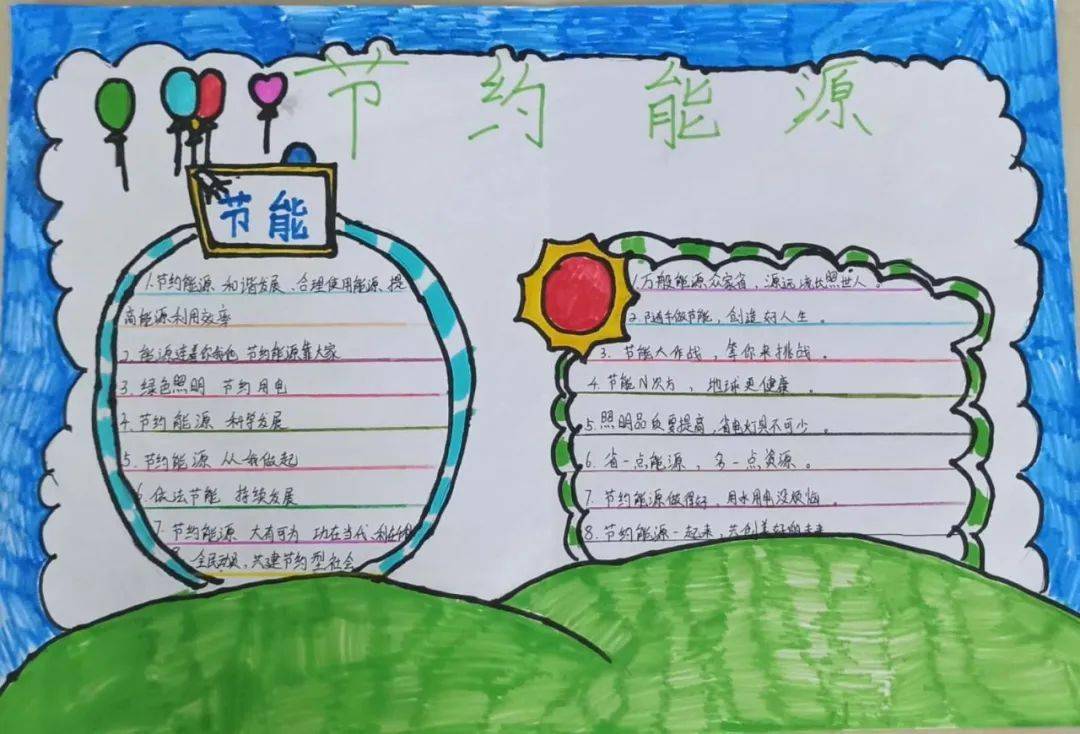 节约能源
节能
1.节约能源 和谐发展、合理使用能源、提
高能源利用效率
2. 能源连着你我他 节约能源靠大家
3. 绿色照明 节约用电
4. 节约能源 科学发展
5. 节约能源 从我做起
6. 依法节能 持续发展
7. 节约能源 大有可为 功在当代、利在
8. 全民动员，共建节约型社会
1.万般能源众家省，源远流长照世人。
2. 随手做节能，创造好人生。
3. 节能大作战，等你来挑战。
4. 节能N次方、地球更健康。
5. 照明品质要提高，省电灯具不可少。
6. 省一点能源，多一点资源。
7. 节约能源做得好，用水用电没烦恼。
8. 节约能源一起来，共创美好的未来